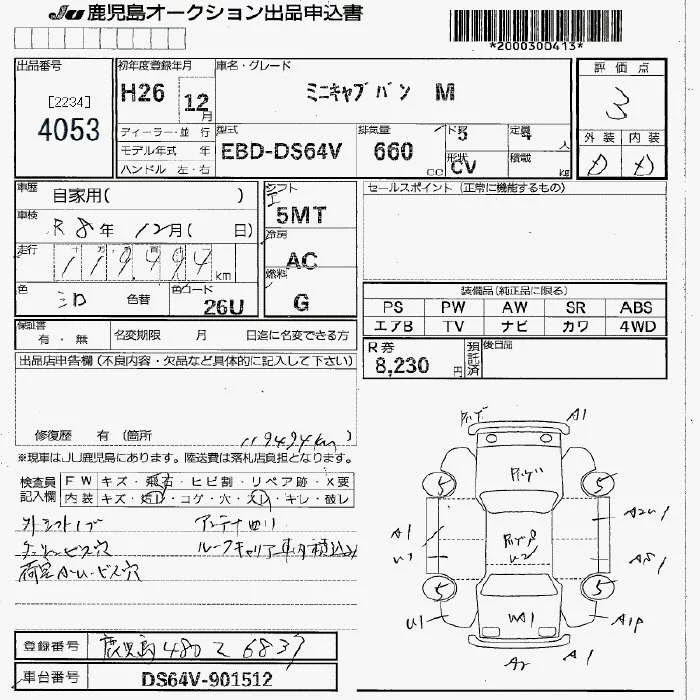 JU 鹿児島オークション出品申込書
*2000300413*
出品番号
[2234]
4053
初年度登録年月
H26 12月
車名・グレード
ミニキャブバン M
評価点
3
外装 内装
D D
ディーラー・並行
モデル年式 年
ハンドル 左・右
型式
EBD-DS64V
排気量
660 cc
ドア 5
定員 4 人
形状 CV
積載 kg
車歴
自家用( )
車検
R8年 12月( 日)
走行
119,494 km
色
シロ
色替
色コード
26U
シフト
5MT
冷房
AC
燃料
G
セールスポイント (正常に機能するもの)
装備品(純正品に限る)
PS PW AW SR ABS
エアB TV ナビ カワ 4WD
R券
8,230円
預託済
後日品
保証書
有・無
名変期限 月 日迄に名変できる方
出品店申告欄(不良内容・欠品など具体的に記入して下さい)
修復歴 有(箇所
119494km)
※現車はJU鹿児島にあります。陸送費は落札店負担となります。
検査員記入欄
FW キズ・飛石・ヒビ割・リペア跡・X要
内装 キズ・汚レ・コゲ・穴・スレ・キレ・破レ
外シフトノブ
アンテナ曲り
ルーフキャリアー車内積込み
登録番号
鹿児島480 て 6837
車台番号
DS64V-901512
A1
5
5
A1
A2U1
U1
U2
5
5
U1
A1P
A2
A1